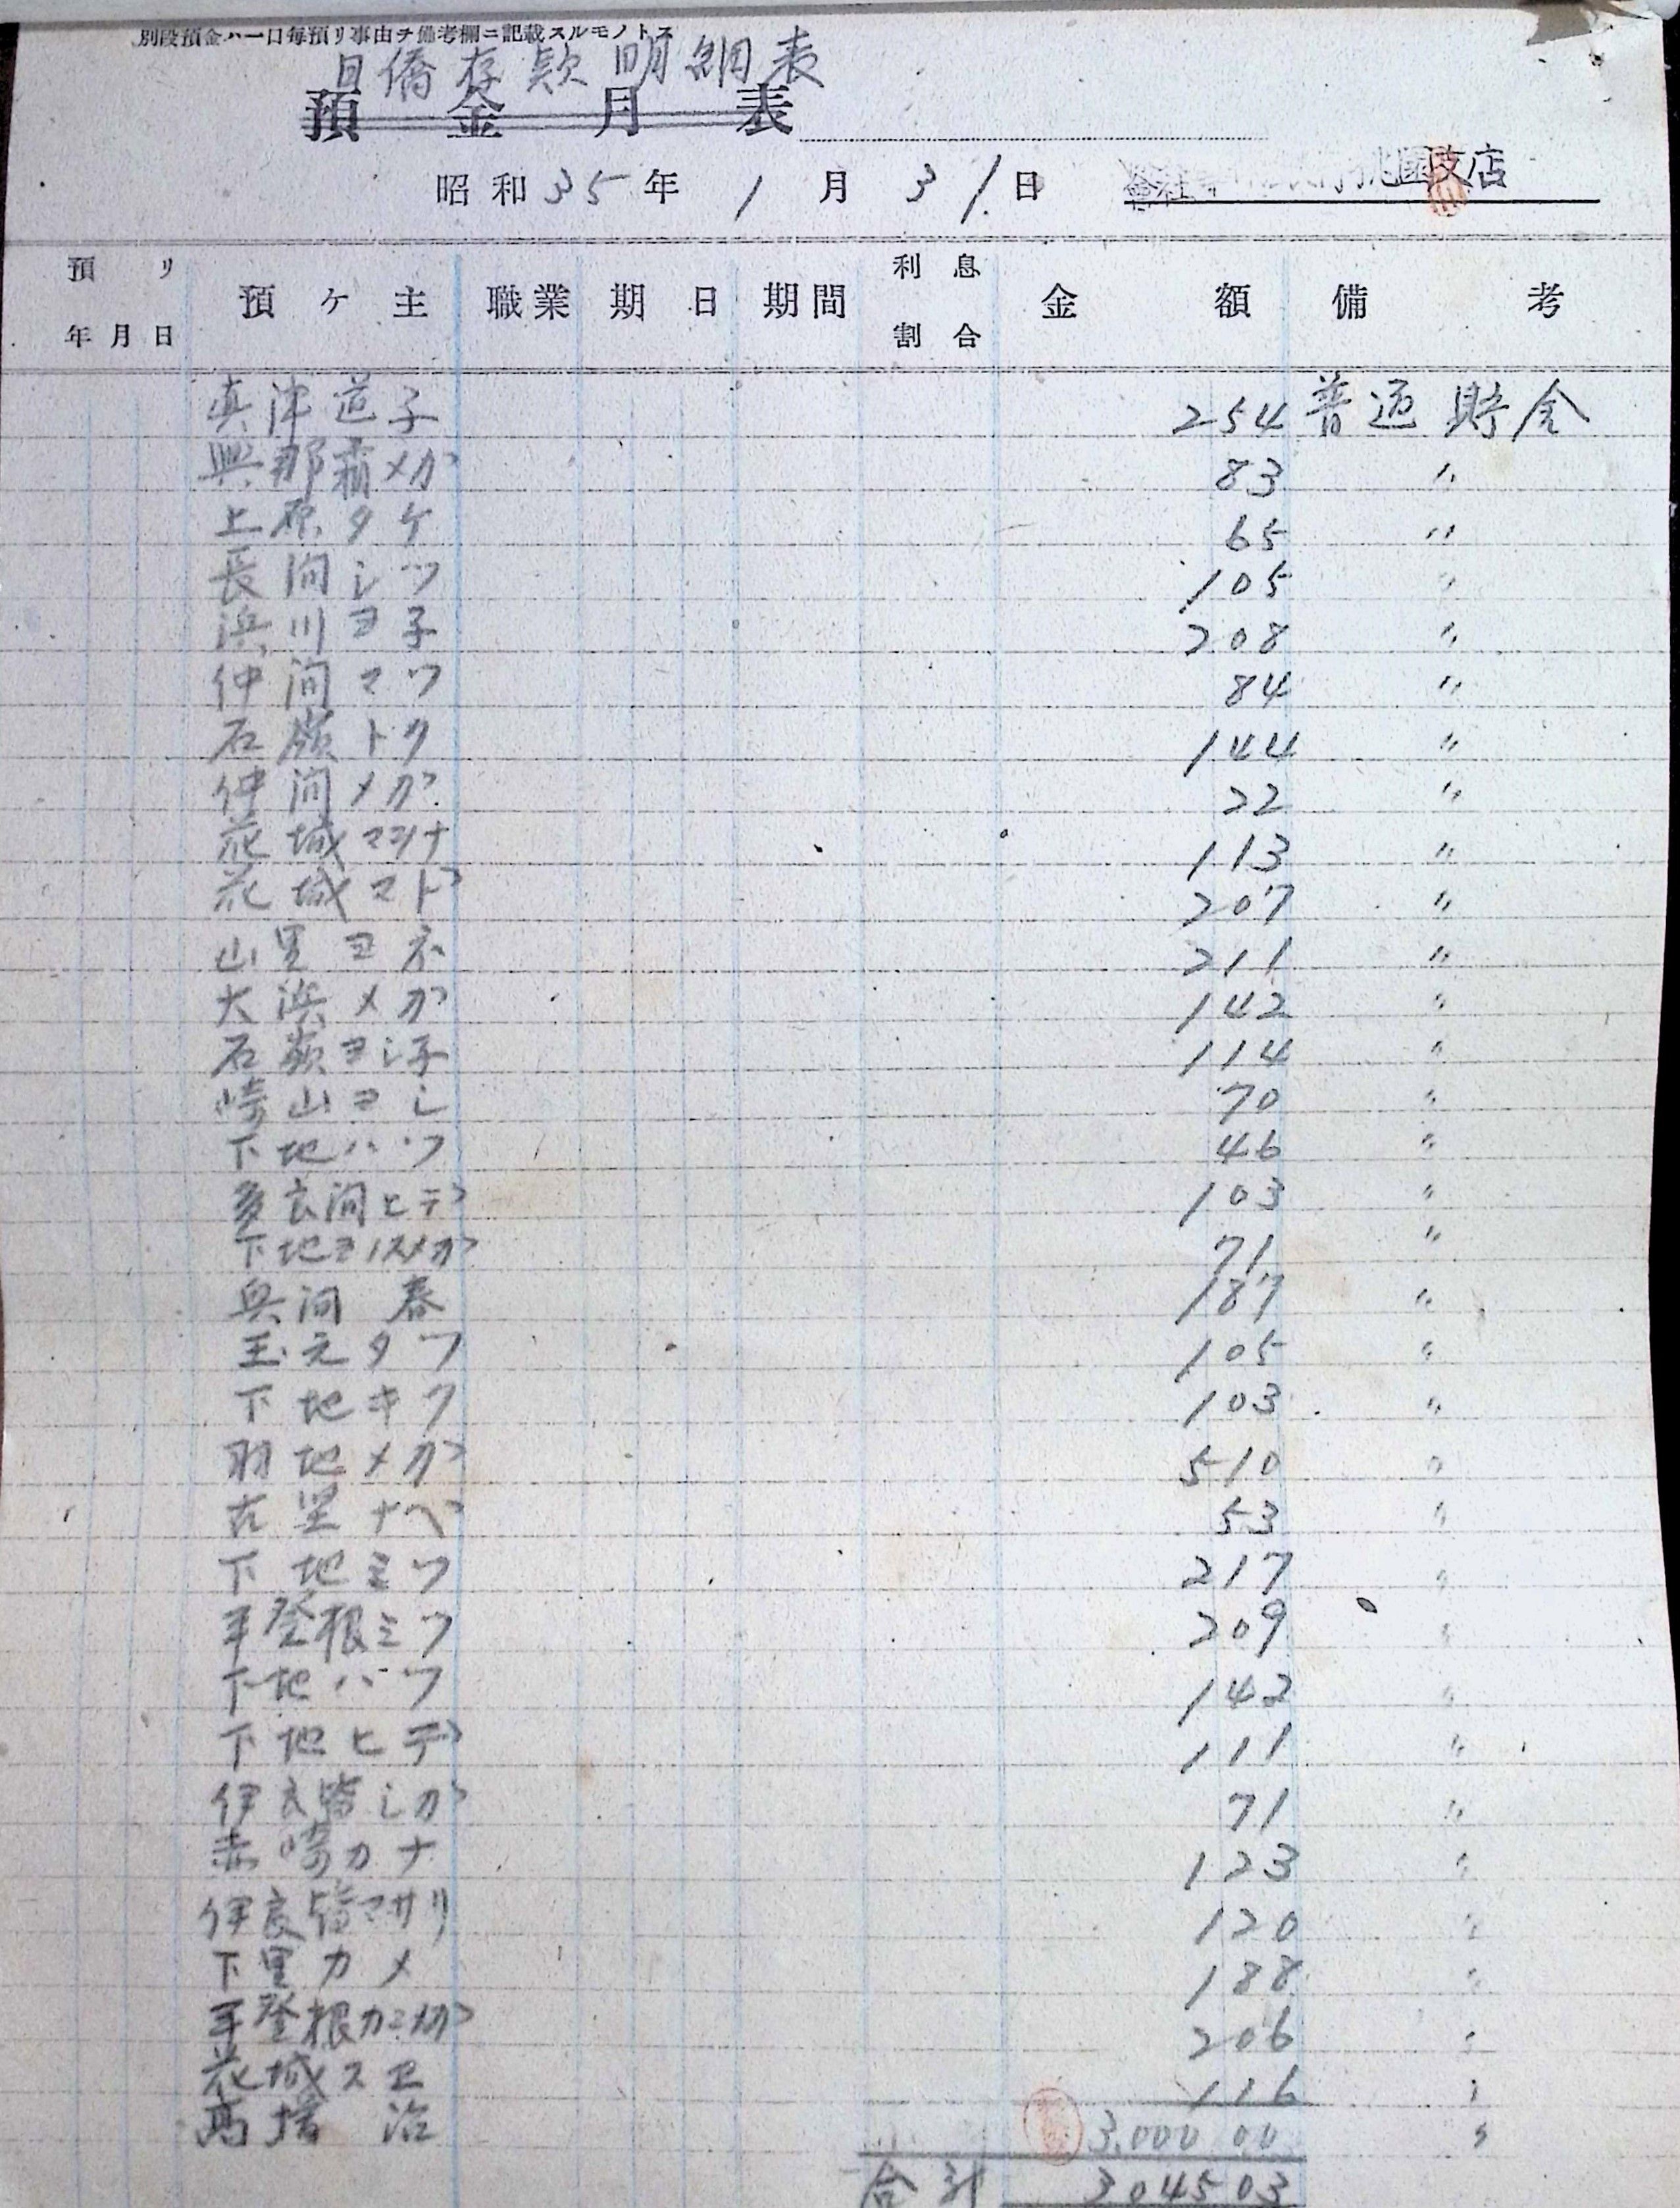 別段預金ハ一口每預リ事由チ備考欄ニ記載スルモノトス
日僑存款明細表
預金月表
昭和35年1月31日 桃園支店
預リ年月日 預ケ主 職業 期日 期間 利息割合 金額 備考
真津道子 254 普通貯金
與那霸メガ 83 〃
上原タケ 65 〃
長間シツ 105 〃
浜川ヨ子 208 〃
仲間マツ 84 〃
石嶺トク 144 〃
仲間メガ 22 〃
花城マツナ 113 〃
花城マド 207 〃
山里ヨネ 211 〃
大浜メガ 142 〃
石嶺ヨシ子 114 〃
崎山ヨシ 70 〃
下地ハツ 46 〃
多良間ヒデ 103 〃
下地ヨノスメガ 71 〃
與間春 187 〃
玉元タツ 105 〃
下地キク 103 〃
羽地メガ 510 〃
古里ナベ 53 〃
下地ミツ 217 〃
手登根ミツ 209 〃
下地ハツ 142 〃
下地ヒデ 111 〃
伊良皆シガ 71 〃
赤崎カナ 123 〃
伊良皆マサリ 120 〃
下里カメ 188 〃
手登根カニメガ 206 〃
花城スエ 116 〃
髙 治 3,000 00 〃
合計 3045 03